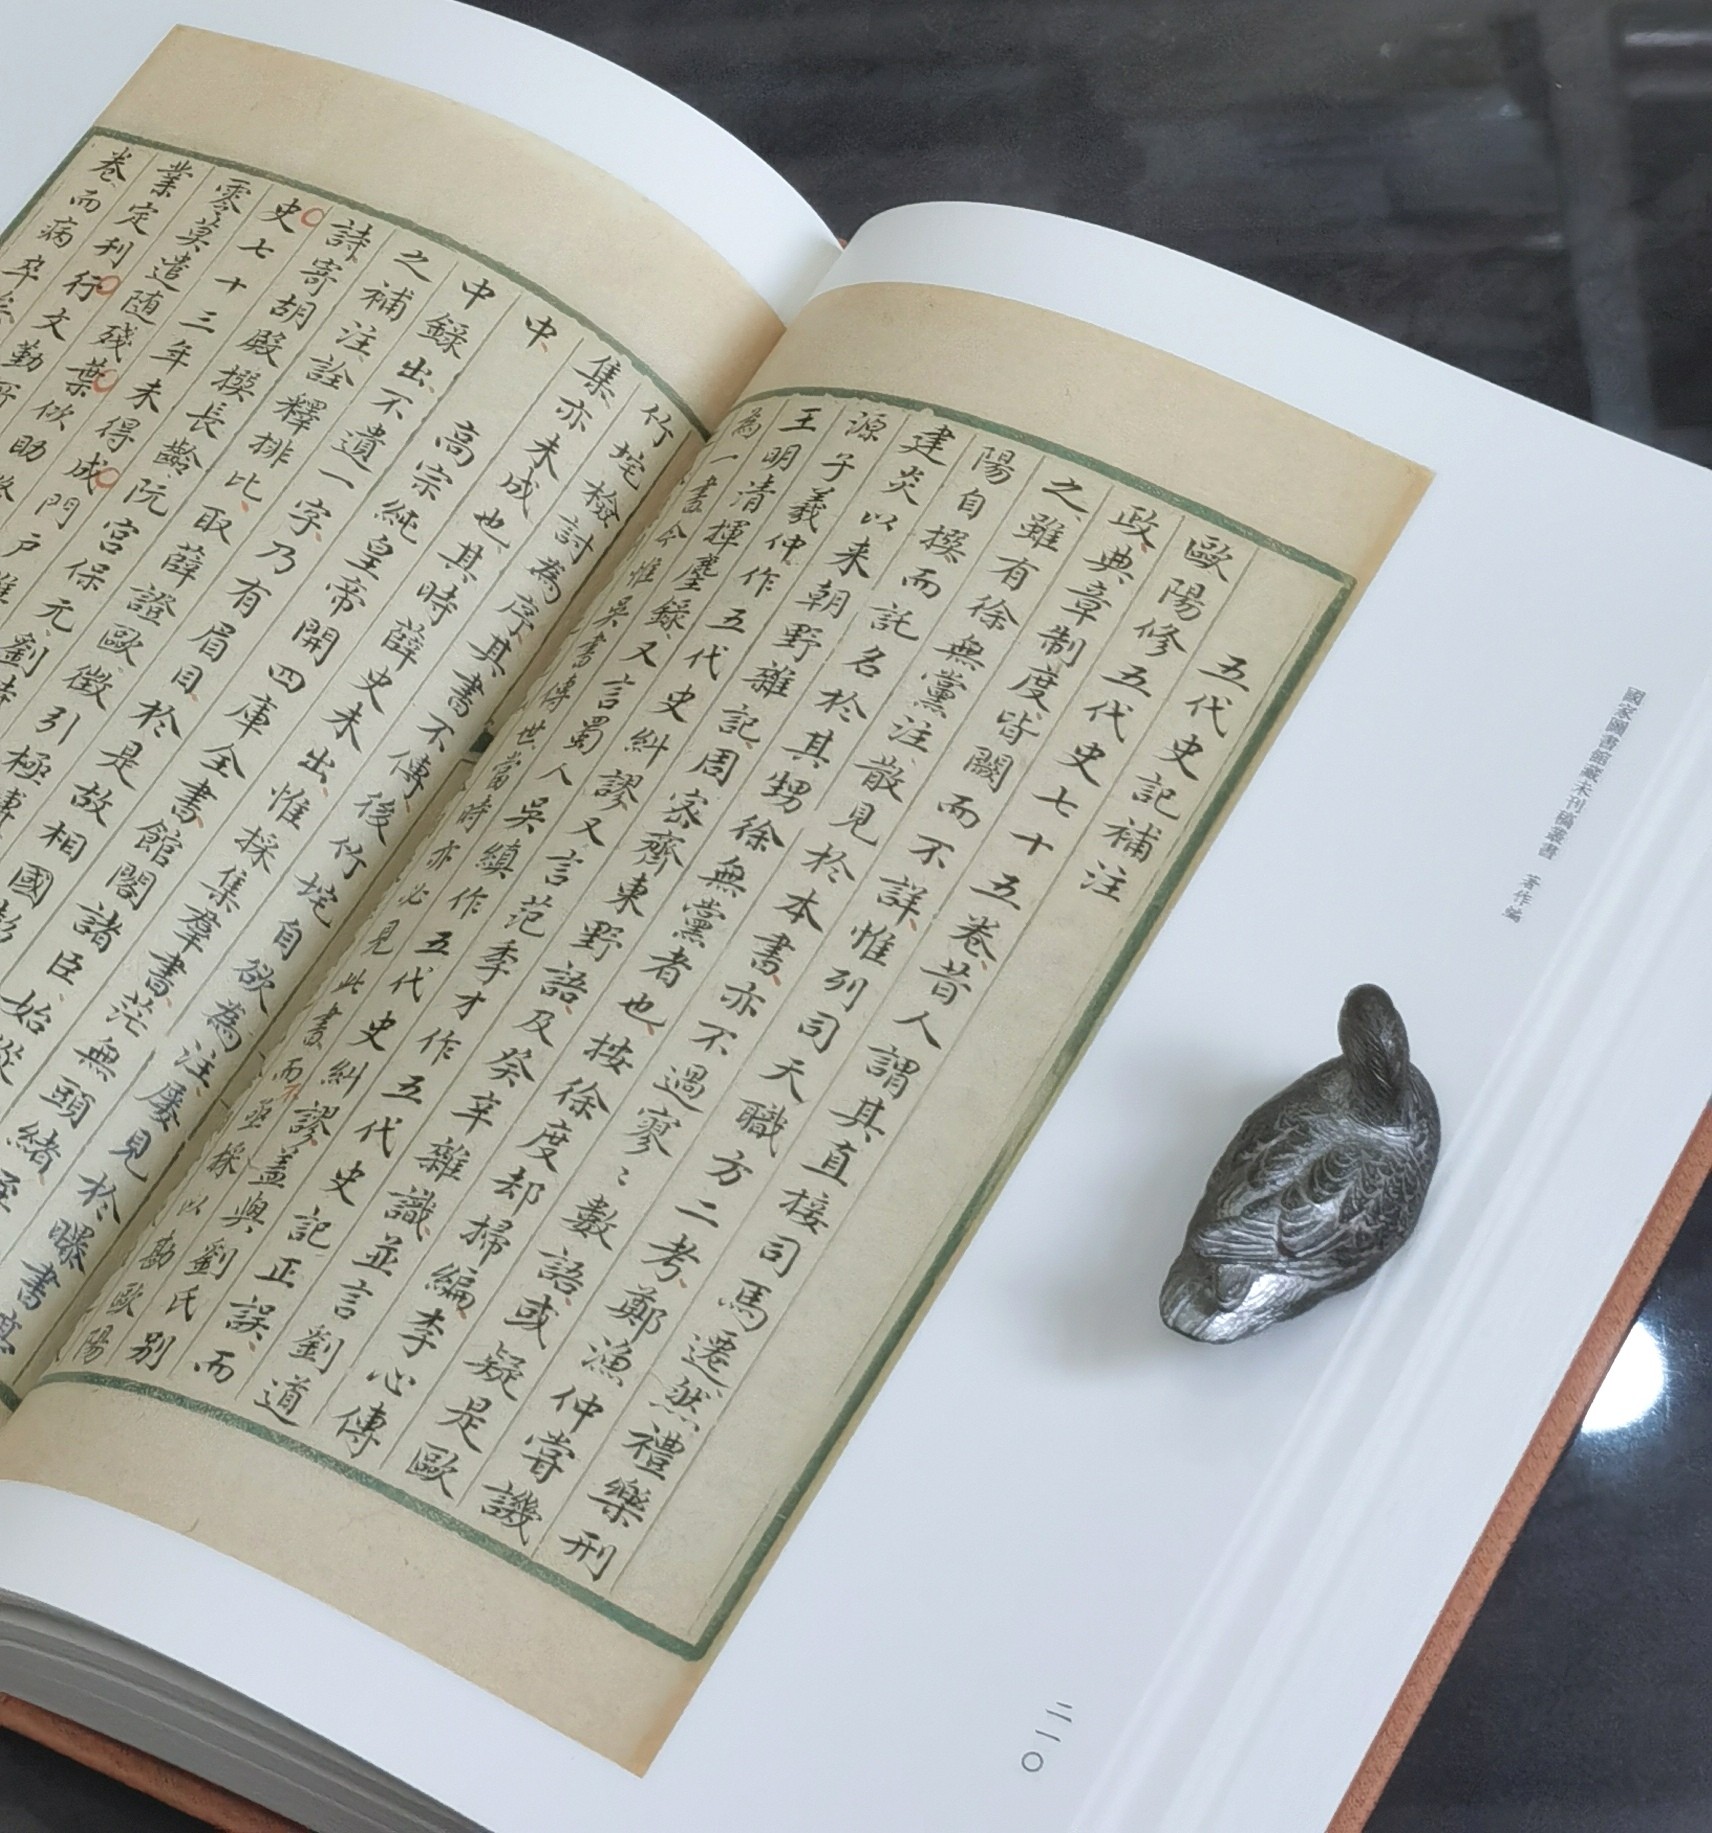 五代史記補注
歐陽修五代史七十五卷昔人謂其直接司馬遷然禮樂刑
政典章制度皆闕而不詳惟列司天職方二考鄭漁仲嘗譏
之雖有徐無黨注散見於本書亦不過寥〻數語或疑是歐
陽自撰而託名於其甥徐無黨者也按徐度却掃編李心傳
建炎以来朝野雜記周密齊東野語及癸辛雜識並言劉道
源子羲仲作五代史糾謬又言范季才作五代史記正誤而
王明清揮麈録又言蜀人吳縝作五代史糾謬盖與劉氏別
為一書今惟吳書傳世當時亦必見此書而亟採以勘歐陽
竹垞檢討為序其書不傳後竹垞自欲為注屢見於曝書亭
集亦未成也其時薛史未出惟採集羣書茫無頭緒至
中
高宗純皇帝開四庫全書館閣諸臣始從
中錄出不遺一字乃有眉目於是故相國彭
之補注詮釋排比取薛證歐徵引極博
詩寄胡殿撰長齡阮宮保元劉
史七十三年未得成門户雖
零莫遣随殘葉
業定刊行文勤所
卷而病卒
國家圖書館藏未刊稿叢書 著作編
二一〇